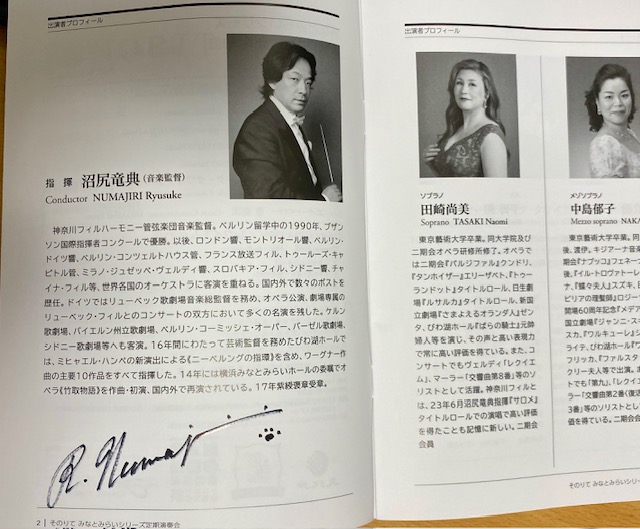 出演者プロフィール
指揮 沼尻竜典(音楽監督)
Conductor NUMAJIRI Ryusuke
神奈川フィルハーモニー管弦楽団音楽監督。ベルリン留学中の1990年、ブザン
ソン国際指揮者コンクールで優勝。以後、ロンドン響、モントリオール響、ベルリン・
ドイツ響、ベルリン・コンツェルトハウス管、フランス放送フィル、トゥールーズ・キャ
ピトル管、ミラノ・ジュゼッペ・ヴェルディ響、スロバキア・フィル、シドニー響、チャ
イナ・フィル等、世界各国のオーケストラに客演を重ねる。国内外で数々のポストを
歴任。ドイツではリューベック歌劇場音楽総監督を務め、オペラ公演、劇場専属の
リューベック・フィルとのコンサートの双方において多くの名演を残した。ケルン
歌劇場、バイエルン州立歌劇場、ベルリン・コーミッシェ・オーパー、バーゼル歌劇場、
シドニー歌劇場等へも客演。16年間にわたって芸術監督を務めたびわ湖ホールで
は、ミヒャエル・ハンペの新演出による《ニーベルングの指環》を含め、ワーグナー作
曲の主要10作品をすべて指揮した。14年には横浜みなとみらいホールの委嘱でオ
ペラ《竹取物語》を作曲・初演、国内外で再演されている。17年紫綬褒章受章。
R. Numaji
2 | そのりて みなとみらいシリーズ定期演奏会
出演者プロフィール
ソプラノ
田崎尚美
Soprano TASAKI Naomi
東京藝術大学卒業。同大学院及び
二期会オペラ研修所修了。オペラで
は二期会『パルジファル』クンドリ、
『タンホイザー』エリーザベト、『トゥー
ランドット』タイトルロール、日生劇
場『ルサルカ』タイトルロール、新国
立劇場『さまよえるオランダ人』ゼン
タ、びわ湖ホール『ばらの騎士』元帥
婦人等を演じ、その声と高い表現力
で常に高い評価を得ている。また、コ
ンサートでもヴェルディ「レクイエ
ム」、マーラー「交響曲第8番」等のソ
リストとして活躍。神奈川フィルと
は、23年6月沼尻竜典指揮『サロメ』
タイトルロールでの演唱で高い評価
を得たことも記憶に新しい。二期会
会員
メゾソプラノ
中島郁子
Mezzo soprano NAKA
東京藝術大学卒業
後、渡伊。キジアーナ音
期会『ナブッコ』フェネー
後、『イル・トロヴァトーレ
ナ、『蝶々夫人』スズキ、
ビリアの理髪師』ロジー
開場60周年記念『メデ
国立劇場『ジャンニ・スキ
スカ、『ワルキューレ』シ
ライテ、びわ湖ホール『ワ
フリッカ、『ファルスタ
クリー夫人等で出演。
ートでも「第九」、「レクイ
交響曲第2番〈復活
3番」等のソリストとし
価を得ている。二期会
そのりて みなとみらいシリー